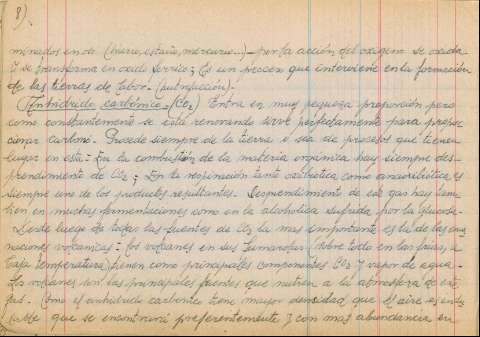 8)
minados en oto. (hierro, estaño, mercurio...) - por la acción del oxígeno se oxida
y se transforma en oxido ferrico; Es un proceso que interviene en la formación
de las tierras de labor. (putrefacción).
(Anhidrido carbónico - (CO2) Entra en muy pequeña proporción pero
como constantemente se está renovando sirve perfectamente para propor
cionar carbono. Procede siempre de la tierra o sea de procesos que tienen
lugar en esta: En la combustión de la materia organica hay siempre des-
prendimiento de CO2; En la respiración tanto oxibiotica como anoxibiótica, es
siempre uno de los productos resultantes. Desprendimiento de ese gas hay tam-
bien en muchas fermentaciones como en la alcoholica sufrida por la glucosa.
Desde luego de todas las fuentes de CO2 la mas importante es la de las ema
naciones volcanicas: los volcanes en sus fumarolas (sobre todo en las frias, a
baja temperatura) tienen como principales componentes CO2 y vapor de agua.
Los volcanes son las principales fuentes que nutren a la atmosfera de este
gas. Como el anhidrido carbonico tiene mayor densidad que el aire es indu
dable que se encontrará preferentemente y con mas abundancia en